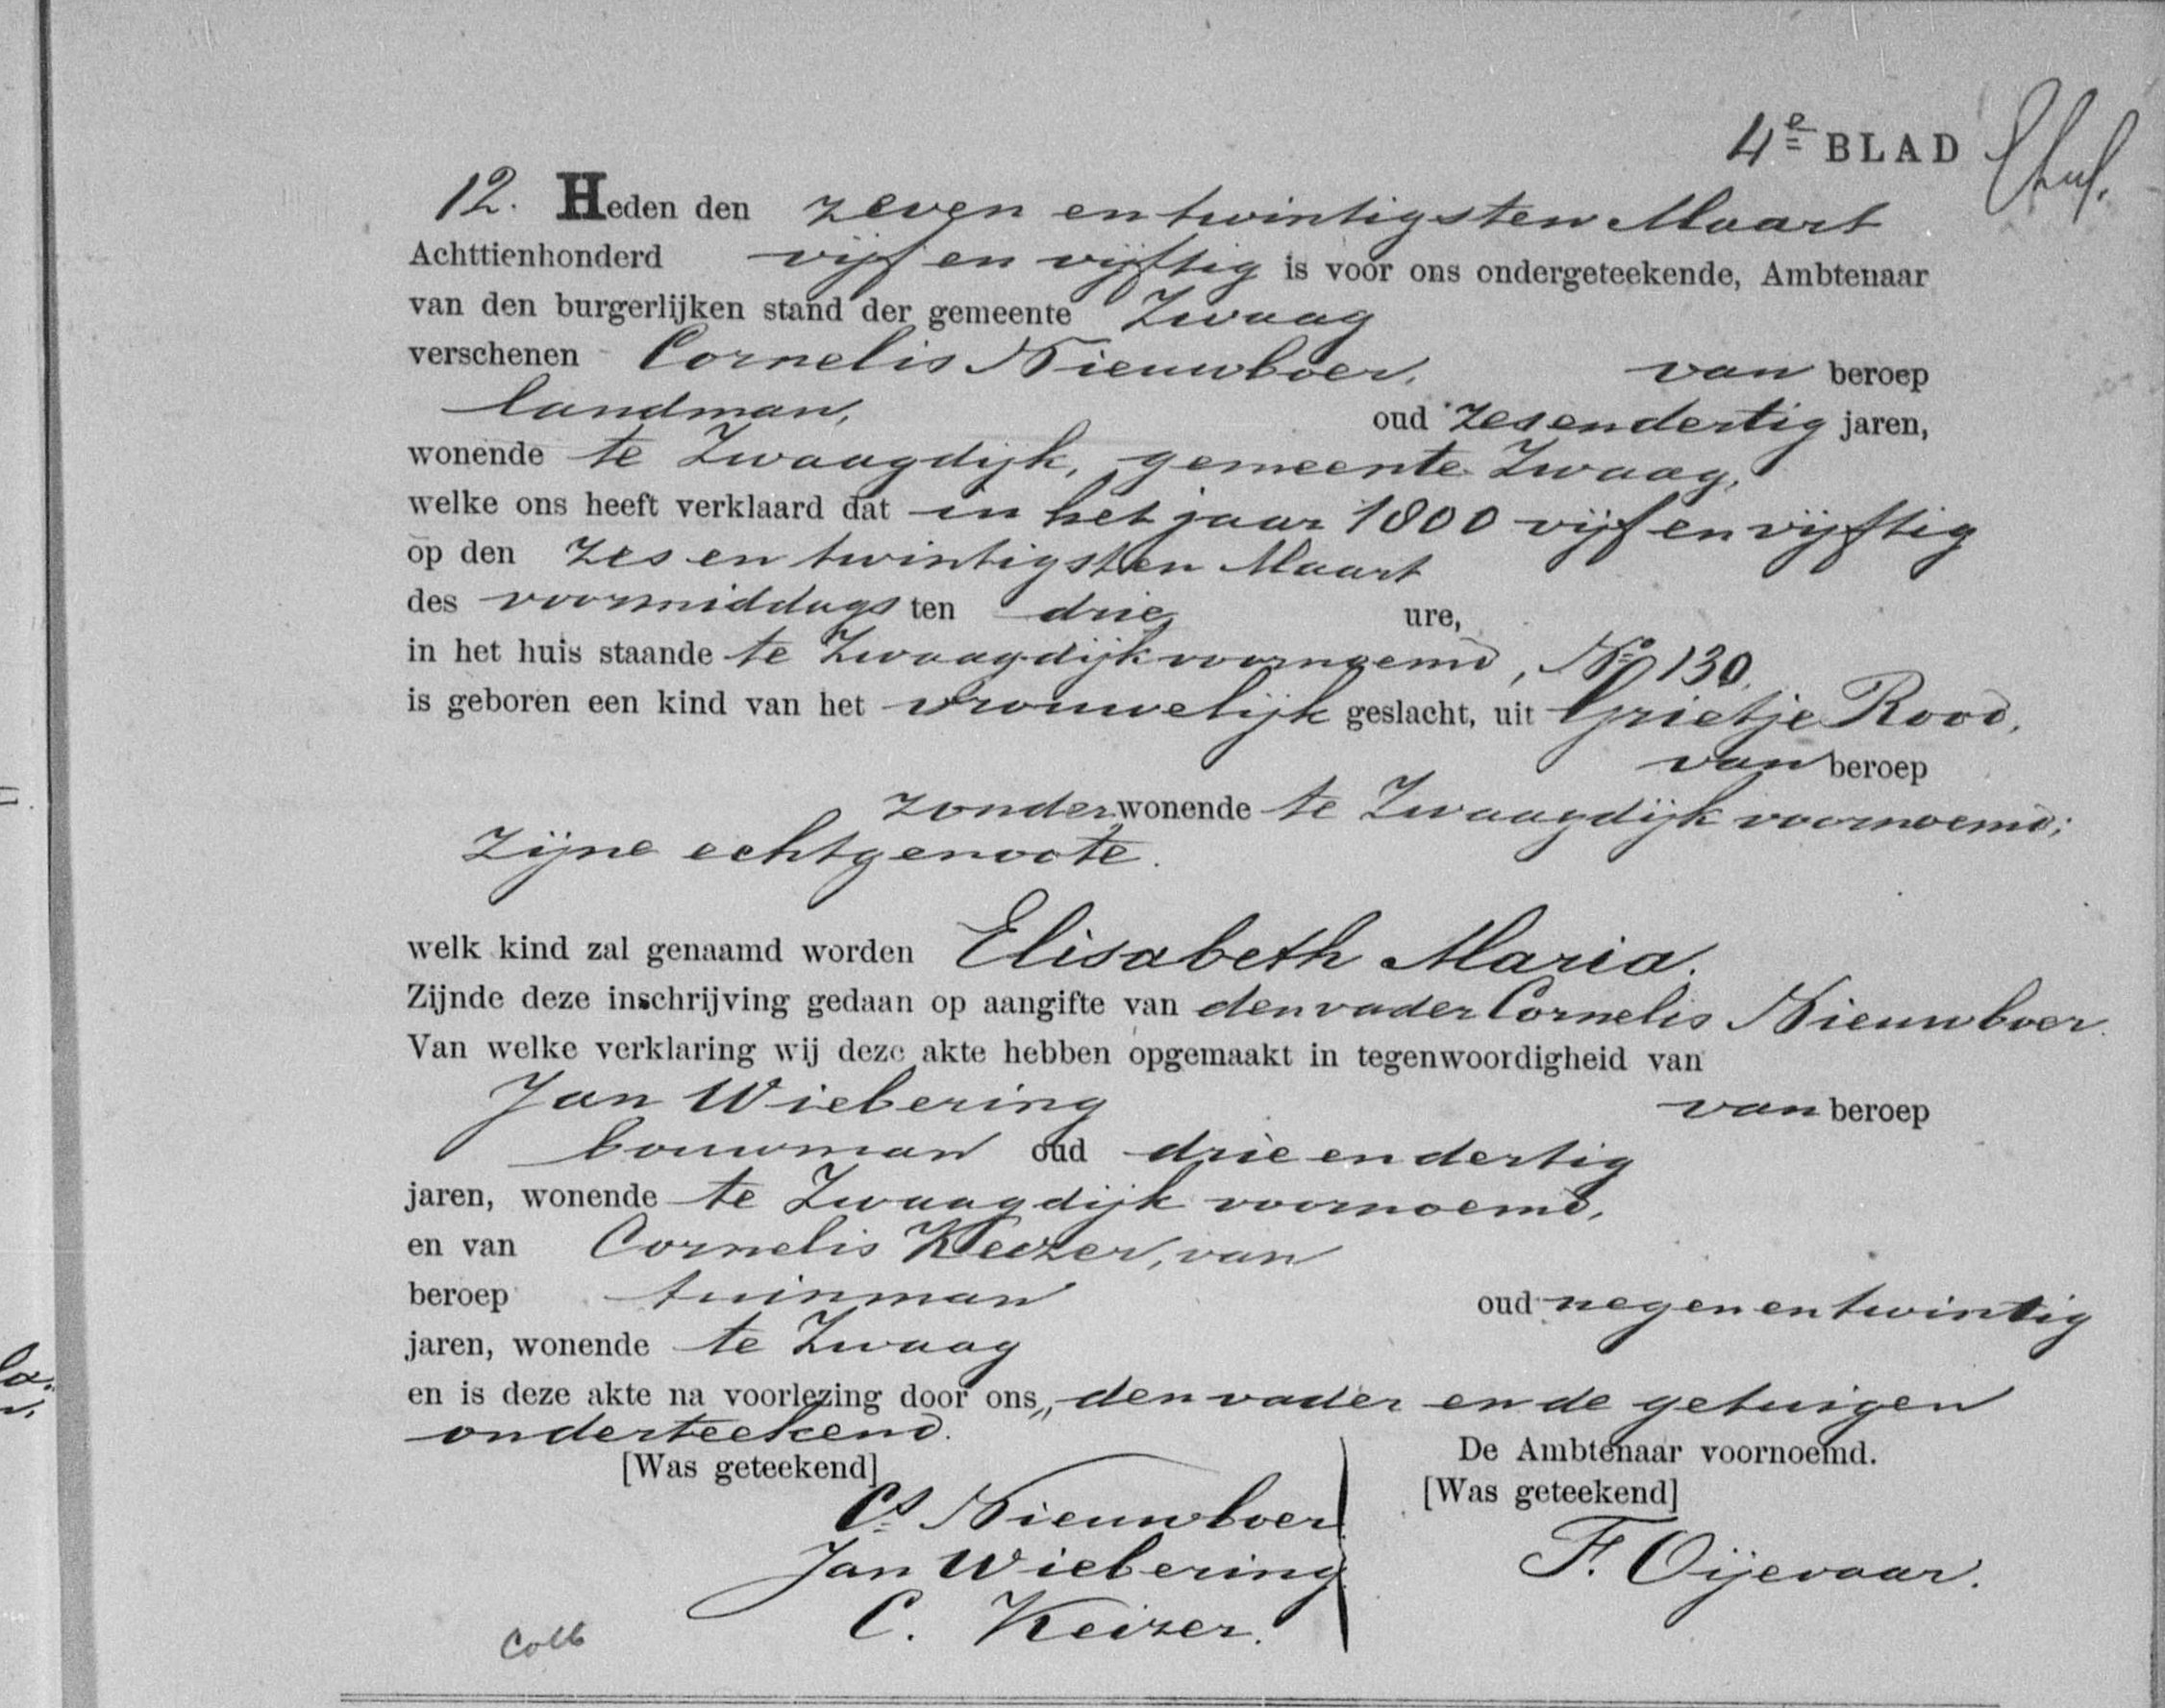 4e BLAD
12. Heden den zeven en twintigsten Maart
Achttienhonderd vijf en vijftig is voor ons ondergeteekende, Ambtenaar
van den burgerlijken stand der gemeente Zwaag
verschenen Cornelis Nieuwboer, van beroep
landman, oud zesendertig jaren,
wonende te Zwaagdijk, gemeente Zwaag,
welke ons heeft verklaard dat in het jaar 1800 vijf en vijftig
op den zes en twintigsten Maart
des voormiddags ten drie ure,
in het huis staande te Zwaagdijk voornoemd, No 130,
is geboren een kind van het vrouwelijk geslacht, uit Grietje Rood,
van beroep
zonder wonende te Zwaagdijk voornoemd;
zijne echtgenoote.
welk kind zal genaamd worden Elisabeth Maria.
Zijnde deze inschrijving gedaan op aangifte van den vader Cornelis Nieuwboer.
Van welke verklaring wij deze akte hebben opgemaakt in tegenwoordigheid van
Jan Wiebering van beroep
bouwman oud drie en dertig
jaren, wonende te Zwaagdijk voornoemd,
en van Cornelis Keizer, van
beroep tuinman oud negen en twintig
jaren, wonende te Zwaag
en is deze akte na voorlezing door ons,, den vader en de getuigen
onderteekend.
[Was geteekend]
Cs Nieuwboer
Jan Wiebering
C. Keizer.
De Ambtenaar voornoemd.
[Was geteekend]
F. Oijevaar.
Coll